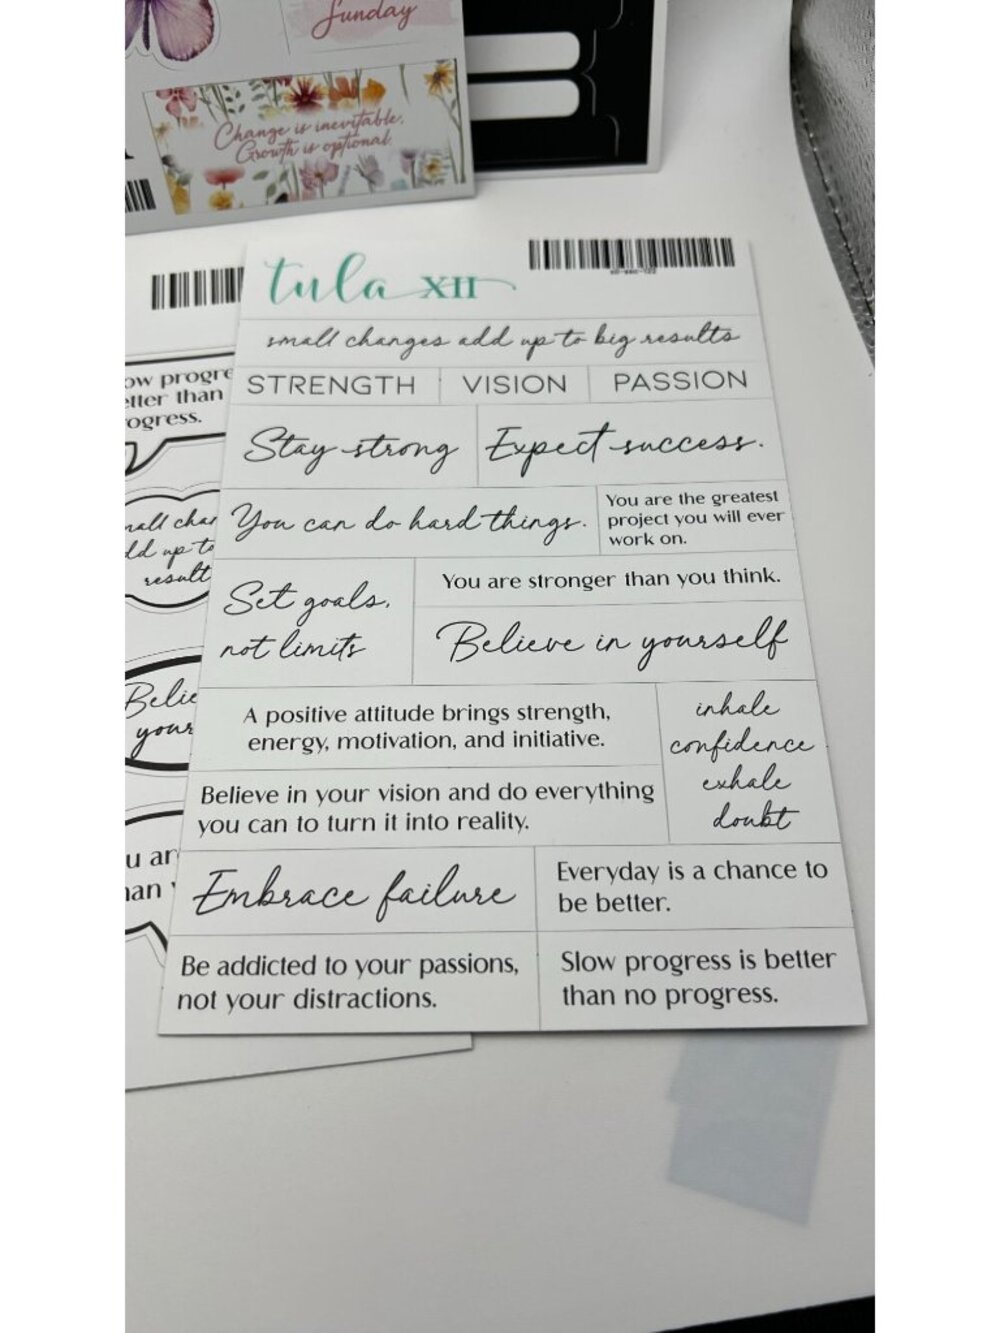 Sunday
Change is inevitable.
Growth is optional.
tula XII
small changes add up to big results
STRENGTH VISION PASSION
Stay strong
Expect success.
You can do hard things.
You are the greatest
project you will ever
work on.
Set goals,
not limits
You are stronger than you think.
Believe in yourself
A positive attitude brings strength,
energy, motivation, and initiative.
inhale
confidence
exhale
doubt
Believe in your vision and do everything
you can to turn it into reality.
Embrace failure
Everyday is a chance to
be better.
Be addicted to your passions,
not your distractions.
Slow progress is better
than no progress.
ow progre
etter than
rogress.
mall char
dd up to
result
Belie
your
u ar
han